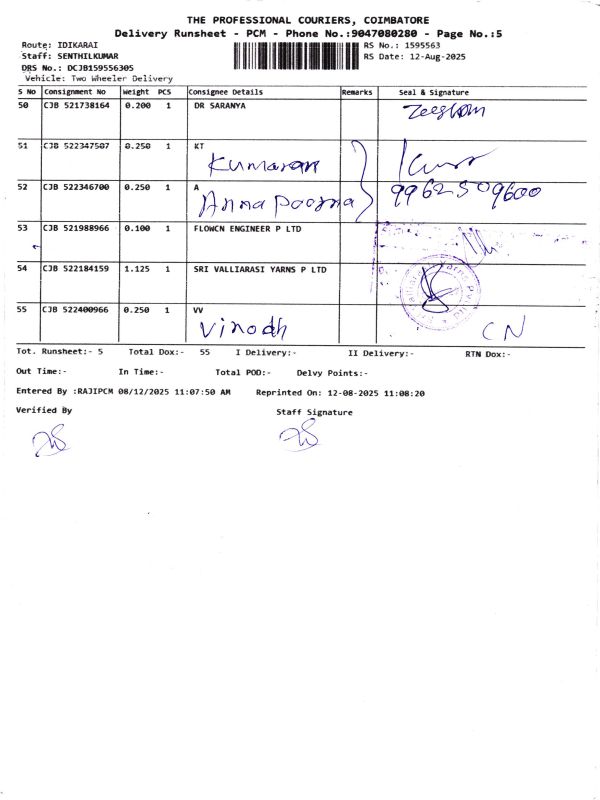 THE PROFESSIONAL COURIERS, COIMBATORE
Delivery Runsheet - PCM - Phone No.:9047080280 - Page No.:5
Route: IDIKARAI
RS No.: 1595563
Staff: SENTHILKUMAR
RS Date: 12-Aug-2025
DRS No.: DCJB159556305
Vehicle: Two Wheeler Delivery
S No Consignment No Weight PCS Consignee Details Remarks Seal & Signature
50 CJB 521738164 0.200 1 DR SARANYA
51 CJB 522347507 0.250 1 KT
Kumaran
52 CJB 522346700 0.250 1 A
Anna Poorna
9962509600
53 CJB 521988966 0.100 1 FLOWCN ENGINEER P LTD
54 CJB 522184159 1.125 1 SRI VALLIARASI YARNS P LTD
55 CJB 522400966 0.250 1 VV
Vinodh CN
Tot. Runsheet:- 5 Total Dox:- 55 I Delivery:- II Delivery:- RTN Dox:-
Out Time:- In Time:- Total POD:- Delvy Points:-
Entered By :RAJIPCM 08/12/2025 11:07:50 AM Reprinted On: 12-08-2025 11:08:20
Verified By Staff Signature